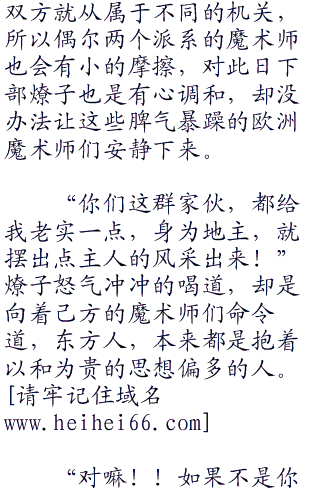 双方就从属于不同的机关，
所以偶尔两个派系的魔术师
也会有小的摩擦，对此日下
部燎子也是有心调和，却没
办法让这些脾气暴躁的欧洲
魔术师们安静下来。
“你们这群家伙，都给
我老实一点，身为地主，就
摆出点主人的风采出来！”
燎子怒气冲冲的喝道，却是
向着己方的魔术师们命令
道，东方人，本来都是抱着
以和为贵的思想偏多的人。
[请牢记住域名
www.heihei66.com]
“对嘛！！如果不是你